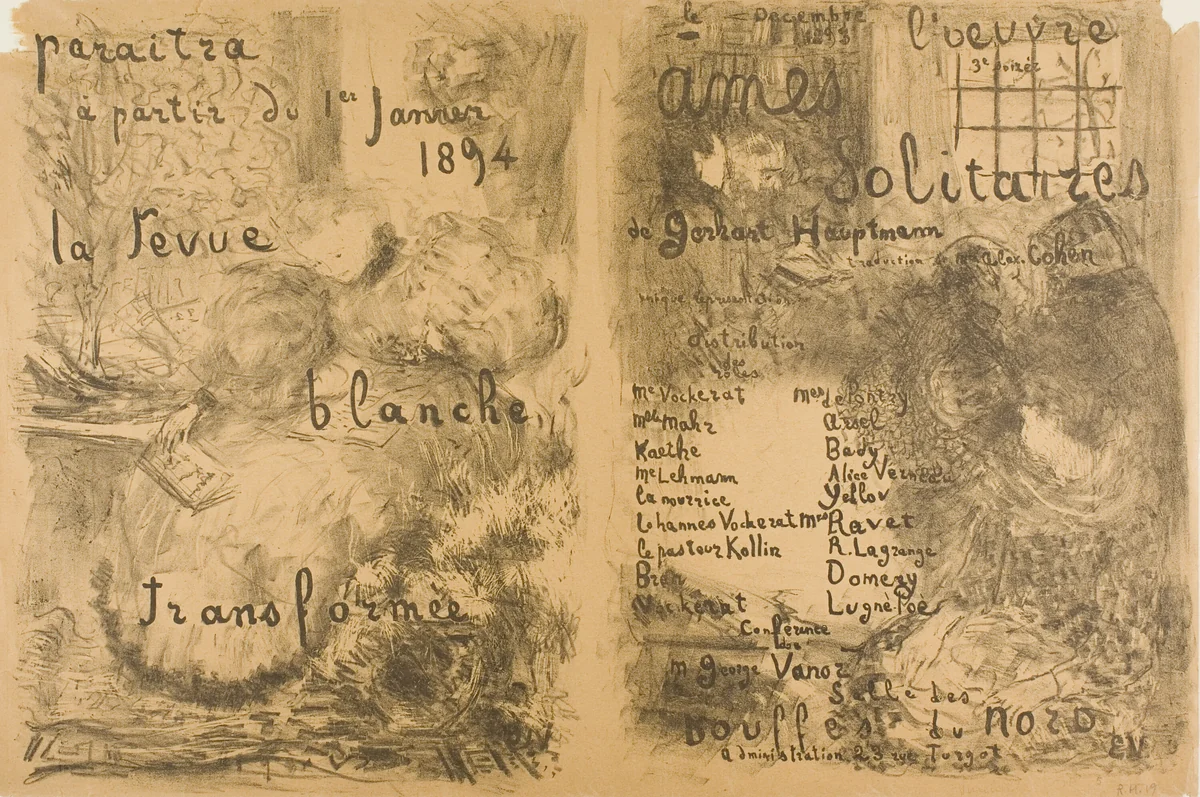 paraitra
à partir du 1er Janvier
1894
la revue
blanche
transformée
le Decembre
1893
l'oeuvre
3e soirée
ames
Solitaires
de Gerhart Hauptmann
traduction de Mr Alex. Cohen
unique representation
distribution
des
rôles
Me Vockerat Mes
Melle Mahr Arsel
Kaethe Bady
Me Lehmann Alice Verneau
la nourrice Yellov
Iohannes Vockerat Mrs Ravet
le pasteur Kollin R. Lagrange
Bran Domery
Vockerat Lugné-Poe
Conférence
de
M George Vanor
Salle des
bouffes du Nord
administration 23 rue Turgot
EV